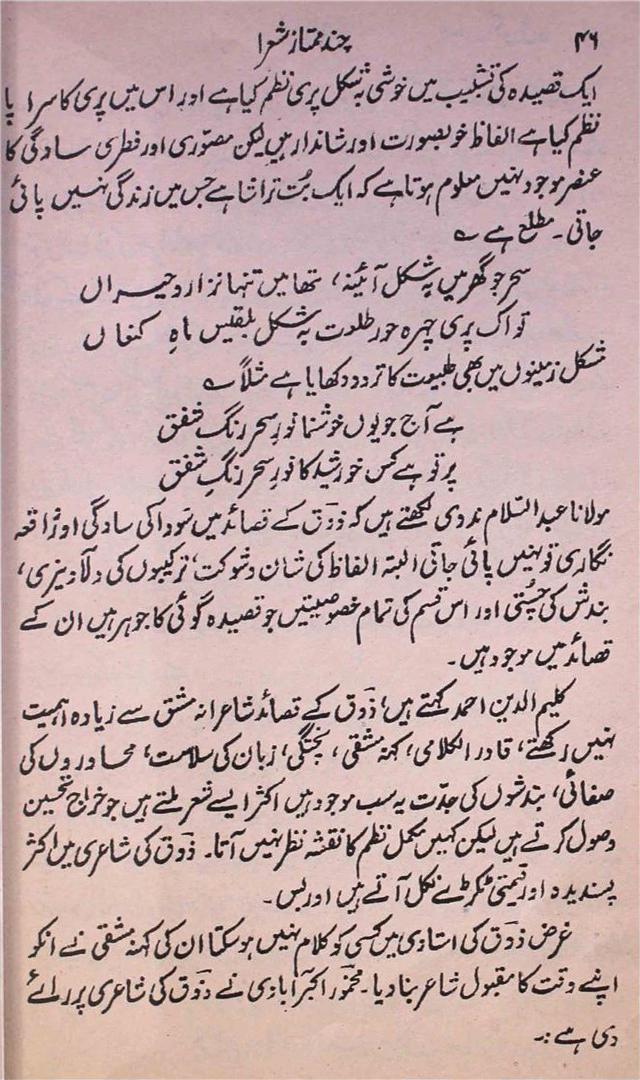 ۴۶ چند ممتاز شعرا
ایک قصیدہ کی تشبیب میں خوشی بہ شکل پری نظم کیا ہے اور اس میں پری کا سرا پا
نظم کیا ہے الفاظ خوبصورت اور شاندار ہیں لیکن مصوّری اور فطری سادگی کا
عنصر موجود نہیں معلوم ہوتا ہے کہ ایک بُت تراشا ہے جس میں زندگی نہیں پائی
جاتی۔ مطلع ہے ؎
سحر جو گھر میں بہ شکل آئینہ، تھا میں تنہا نزار و حیراں
تو اک پری چہرہ حور طلعت بہ شکل بلقیس ماہِ کنعاں
مشکل زمینوں میں بھی طبیعت کا تردد دکھایا ہے مثلاً ؎
ہے آج جو یوں خوشنما نورِ سحر رنگِ شفق
پر تو ہے کس خورشید کا نورِ سحر رنگِ شفق
مولانا عبد السّلام ندوی لکھتے ہیں کہ ذوق کے قصائد میں سودا کی سادگی اور واقعہ
نگاری تو نہیں پائی جاتی البتہ الفاظ کی شان و شوکت، ترکیبوں کی دلآویزی،
بندش کی چُستی اور اس قسم کی تمام خصوصیتیں جو قصیدہ گوئی کا جوہر ہیں ان کے
قصائد میں موجود ہیں۔
کلیم الدین احمد کہتے ہیں، ذوق کے قصائد شاعرانہ مشق سے زیادہ اہمیت
نہیں رکھتے، قادر الکلامی، کہنہ مشقی، پختگی، زبان کی سلاست، محاوروں کی
صفائی، بندشوں کی جدّت یہ سب موجود ہیں اکثر ایسے شعر ملتے ہیں جو خراجِ تحسین
وصول کرتے ہیں لیکن کہیں مکمل نظم کا نقشہ نظر نہیں آتا۔ ذوق کی شاعری میں اکثر
پسندیدہ اور قیمتی ٹکڑے نکل آتے ہیں اور بس۔
غرض ذوق کی استادی میں کسی کو کلام نہیں ہو سکتا ان کی کہنہ مشقی نے انکو
اپنے وقت کا مقبول شاعر بنا دیا۔ مخمور اکبر آبادی نے ذوق کی شاعری پر رائے
دی ہے :۔